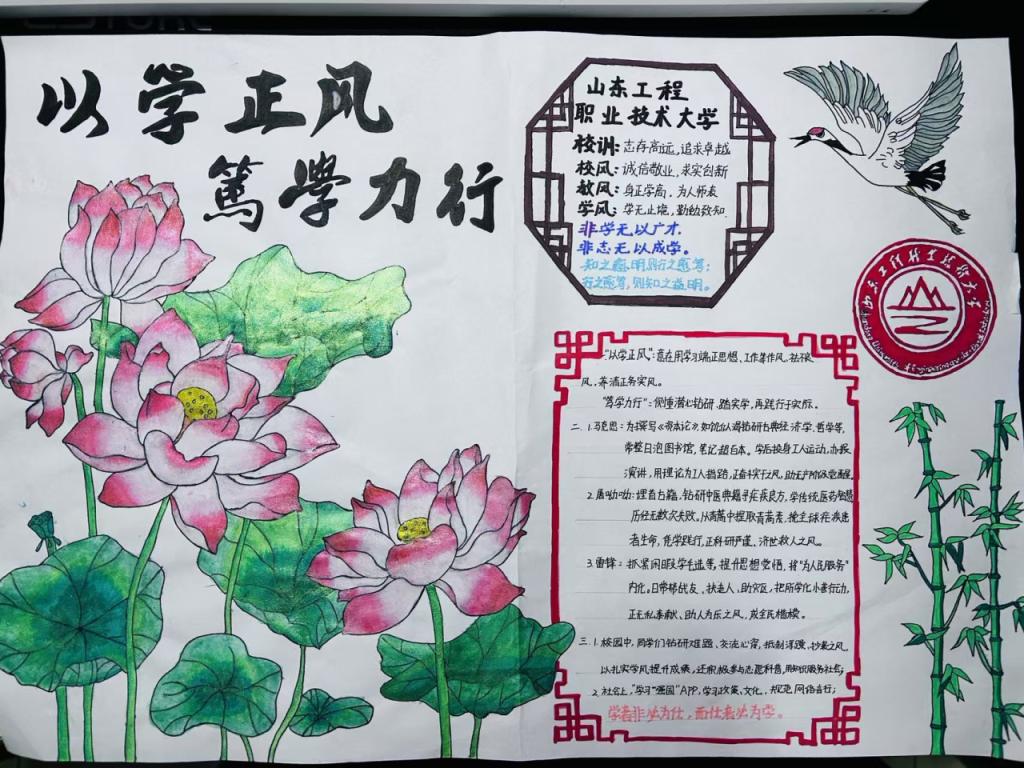 以学正风
笃學力行
山东工程
职业技术大学
校训：志存高远，追求卓越
校风：诚信敬业，求实创新
教风：身正学高，为人师表
学风：学无止境，勤勉致知.
非学无以广才，
非志无以成学。
知之愈明,则行之愈笃;
行之愈笃,则知之益明。
山东工程职业技术大学
"以学正风"：意在用学习端正思想、工作等作风，祛不良
风，养清正务实风。
"笃学力行"：侧重潜心钻研、踏实学，再践行于实际。
二、1.马克思：为撰写《资本论》，如饥似渴钻研古典经济学、哲学等，
常整日泡图书馆，笔记超百本。学后投身工人运动，办报、
演讲，用理论为工人指路，正奋斗实干之风，助无产阶级觉醒。
2.屠呦呦：埋首古籍，钻研中医典籍寻疟疾良方，学传统医药智慧
历经无数次失败。从青蒿中提取青蒿素，挽全球疟疾患
者生命，凭学践行，正科研严谨、济世救人之风。
3.雷锋：抓紧闲暇学毛选等，提升思想觉悟，将"为人民服务"
内化，日常帮战友、扶老人、助灾区，把所学化小善行动，
正无私奉献、助人为乐之风，成全民楷模。
三、1.校园中，同学们钻研难题，交流心得，抵制浮躁、抄袭之风，
以扎实学风提升成绩，还积极参与志愿科普，用知识服务社会；
2.社会上，"学习"强国"APP，学习政策、文化，规范网络言行；
学者非必为仕，而仕者必为学。